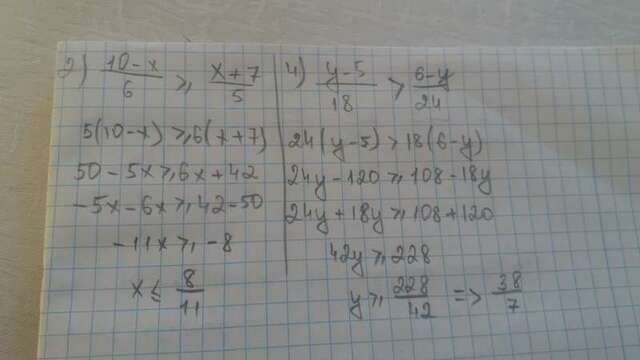 2) (10-x)/6 ⩾ (x+7)/5
5(10-x) ⩾ 6(x+7)
50-5x ⩾ 6x+42
-5x-6x ⩾ 42-50
-11x ⩾ -8
x ≤ 8/11
4) (y-5)/18 > (6-y)/24
24(y-5) > 18(6-y)
24y-120 ⩾ 108-18y
24y+18y ⩾ 108+120
42y ⩾ 228
y ⩾ 228/42 => 38/7